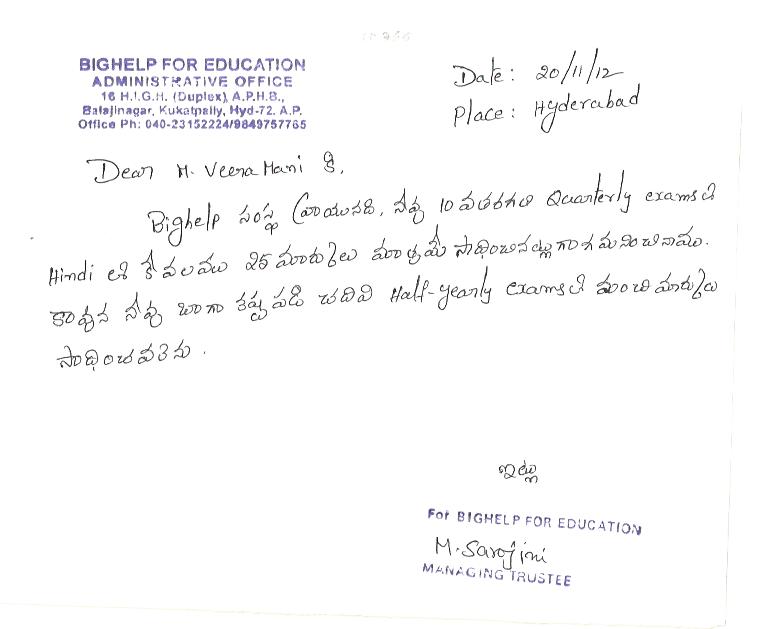 BIGHELP FOR EDUCATION
ADMINISTRATIVE OFFICE
16 H.I.G.H. (Duplex), A.P.H.B.,
Balajinagar, Kukatpally, Hyd-72. A.P.
Office Ph: 040-23152224/9849757765
Date: 20/11/12
Place: Hyderabad
Dear M. Veera Mani కి,
Bighelp సంస్థ వ్రాయునది, నీవు 10 వతరగతి Quarterly exams లో
Hindi లో కేవలము 25 మార్కులు మాత్రమే సాధించినట్లుగా గమనించినాము.
కావున నీవు బాగా కష్టపడి చదివి Half-yearly exams లో మంచి మార్కులు
సాధించవలెను.
ఇట్లు
For BIGHELP FOR EDUCATION
M. Sarojini
MANAGING TRUSTEE